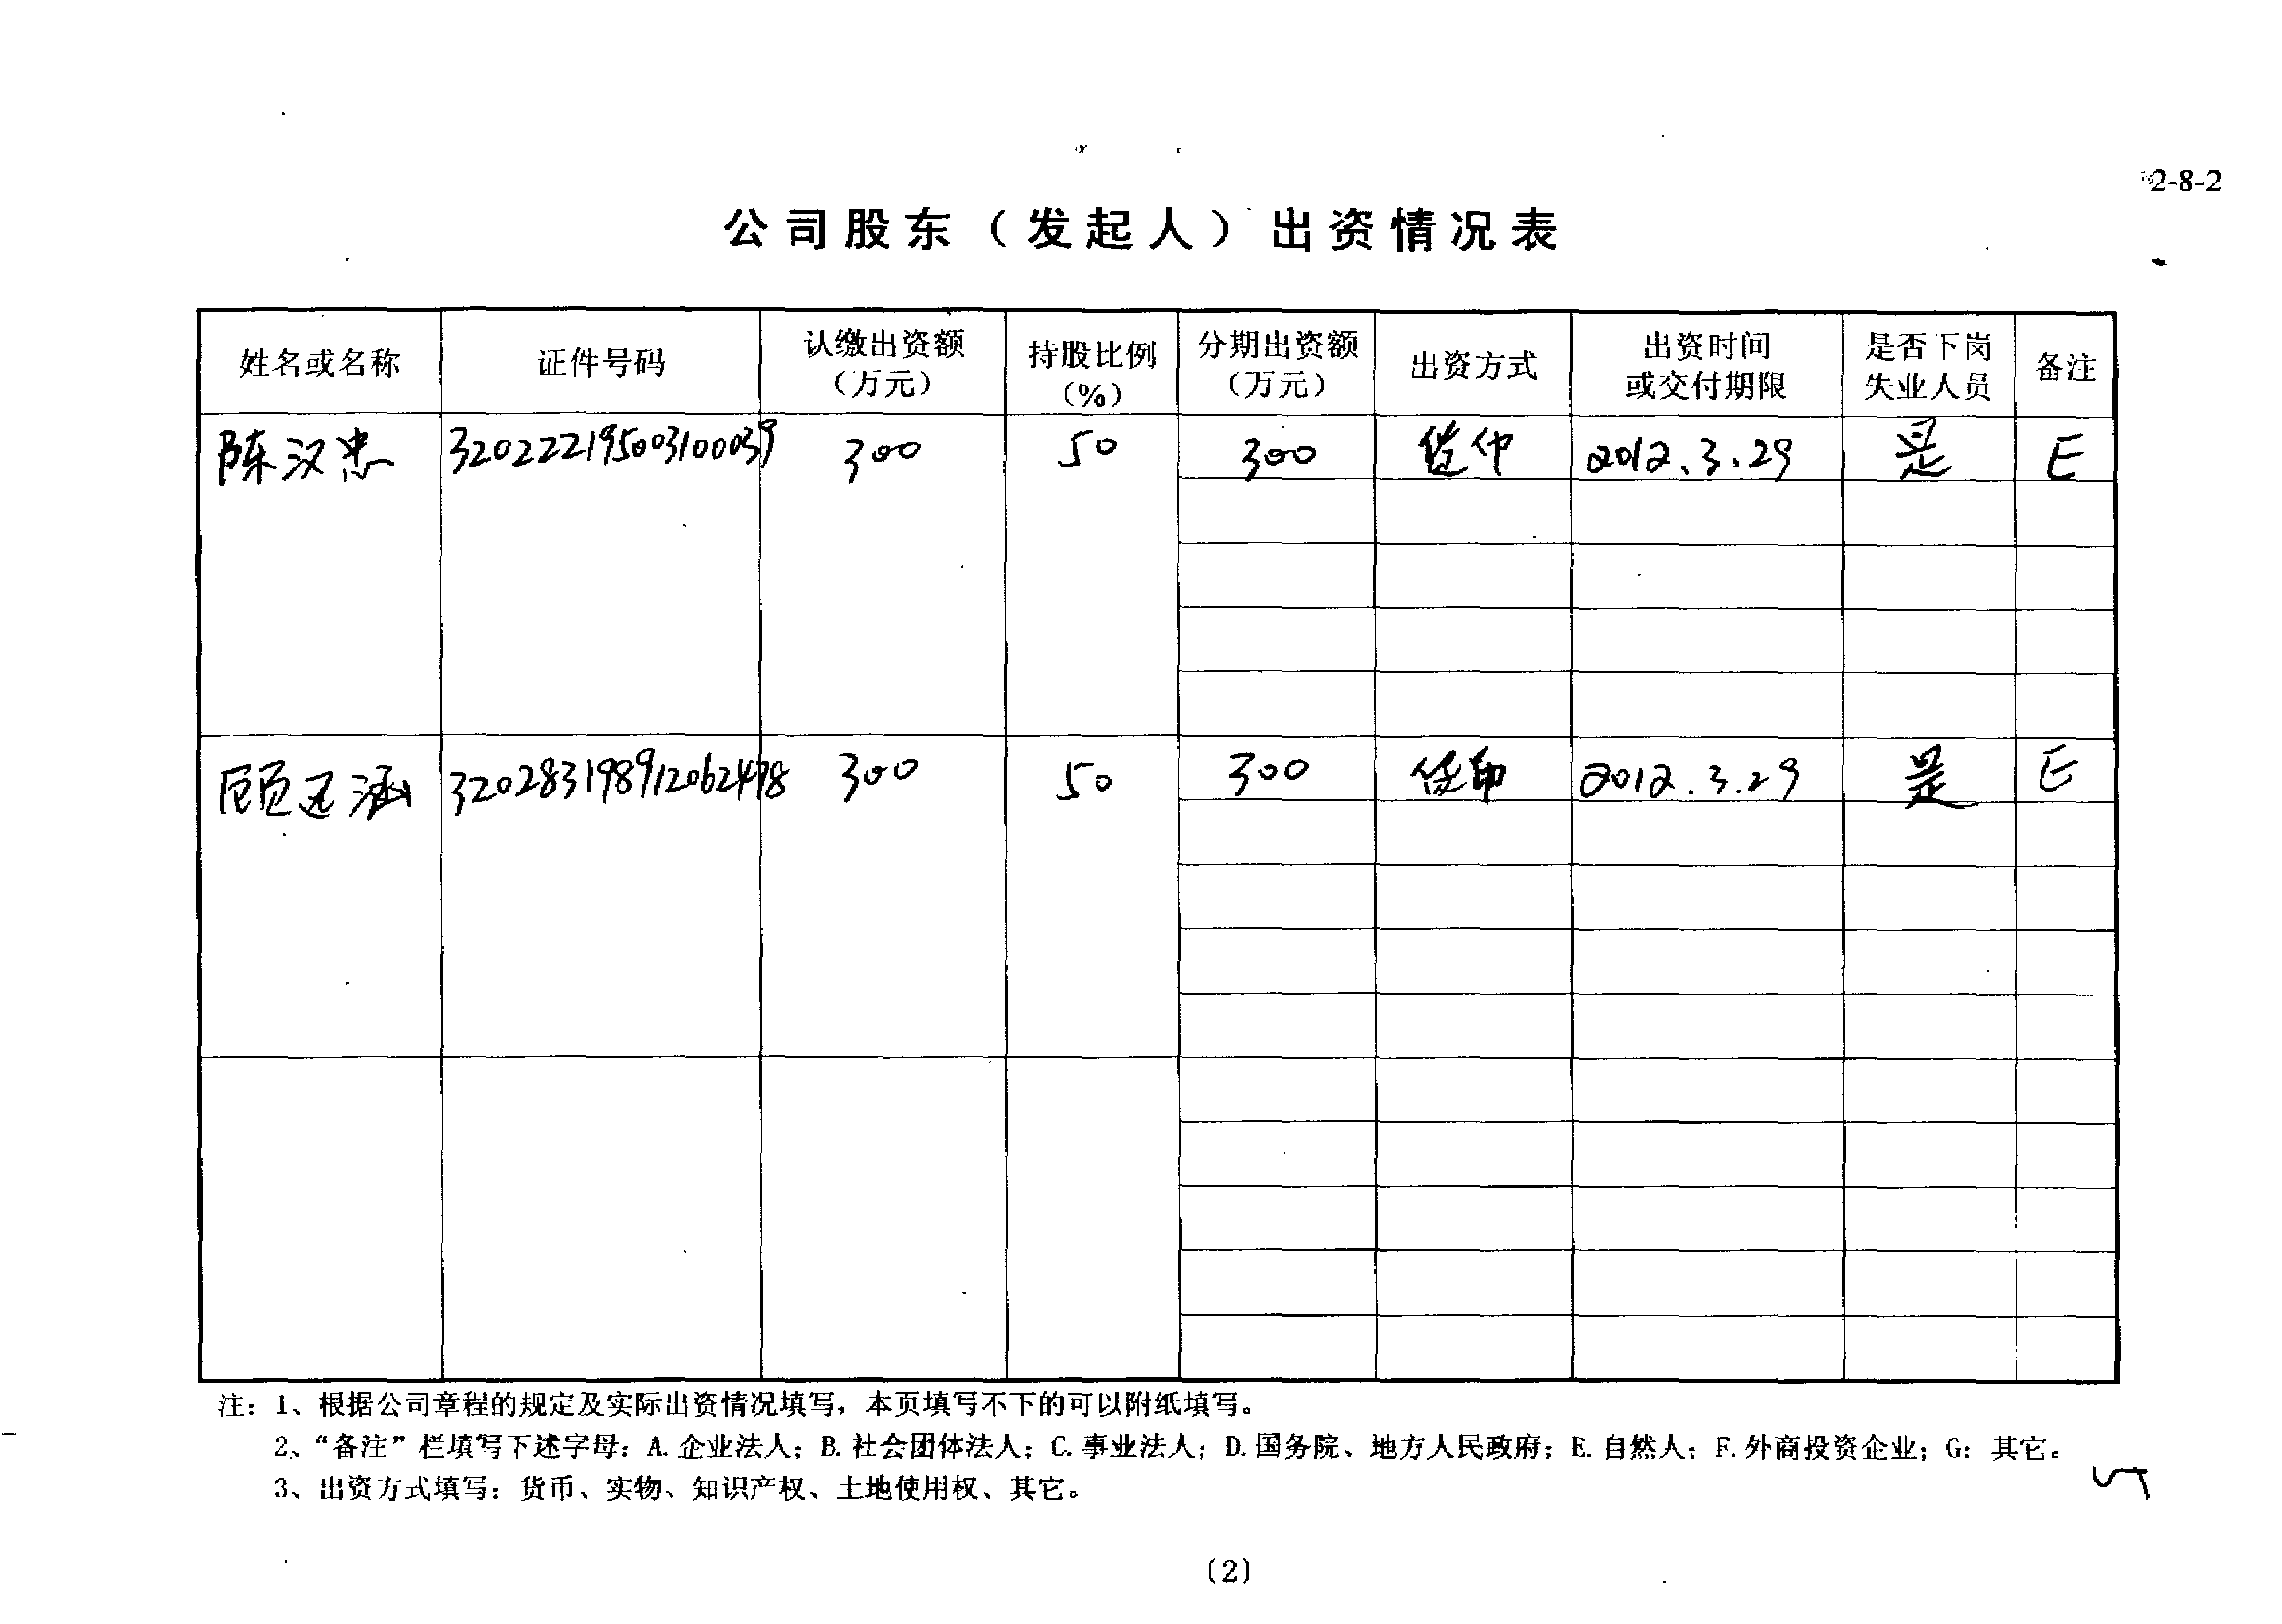 2-8-2
公司股东（发起人）出资情况表
姓名或名称 证件号码 认缴出资额（万元） 持股比例（%） 分期出资额（万元） 出资方式 出资时间或交付期限 是否下岗失业人员 备注
陈汉忠 320222195003100039 300 50 300 货币 2012.3.29 是 E
顾 涵 320283198912062478 300 50 300 货币 2012.3.29 是 E
注：1、根据公司章程的规定及实际出资情况填写，本页填写不下的可以附纸填写。
2、“备注”栏填写下述字母：A.企业法人；B.社会团体法人；C.事业法人；D.国务院、地方人民政府；E.自然人；F.外商投资企业；G：其它。
3、出资方式填写：货币、实物、知识产权、土地使用权、其它。
（2）